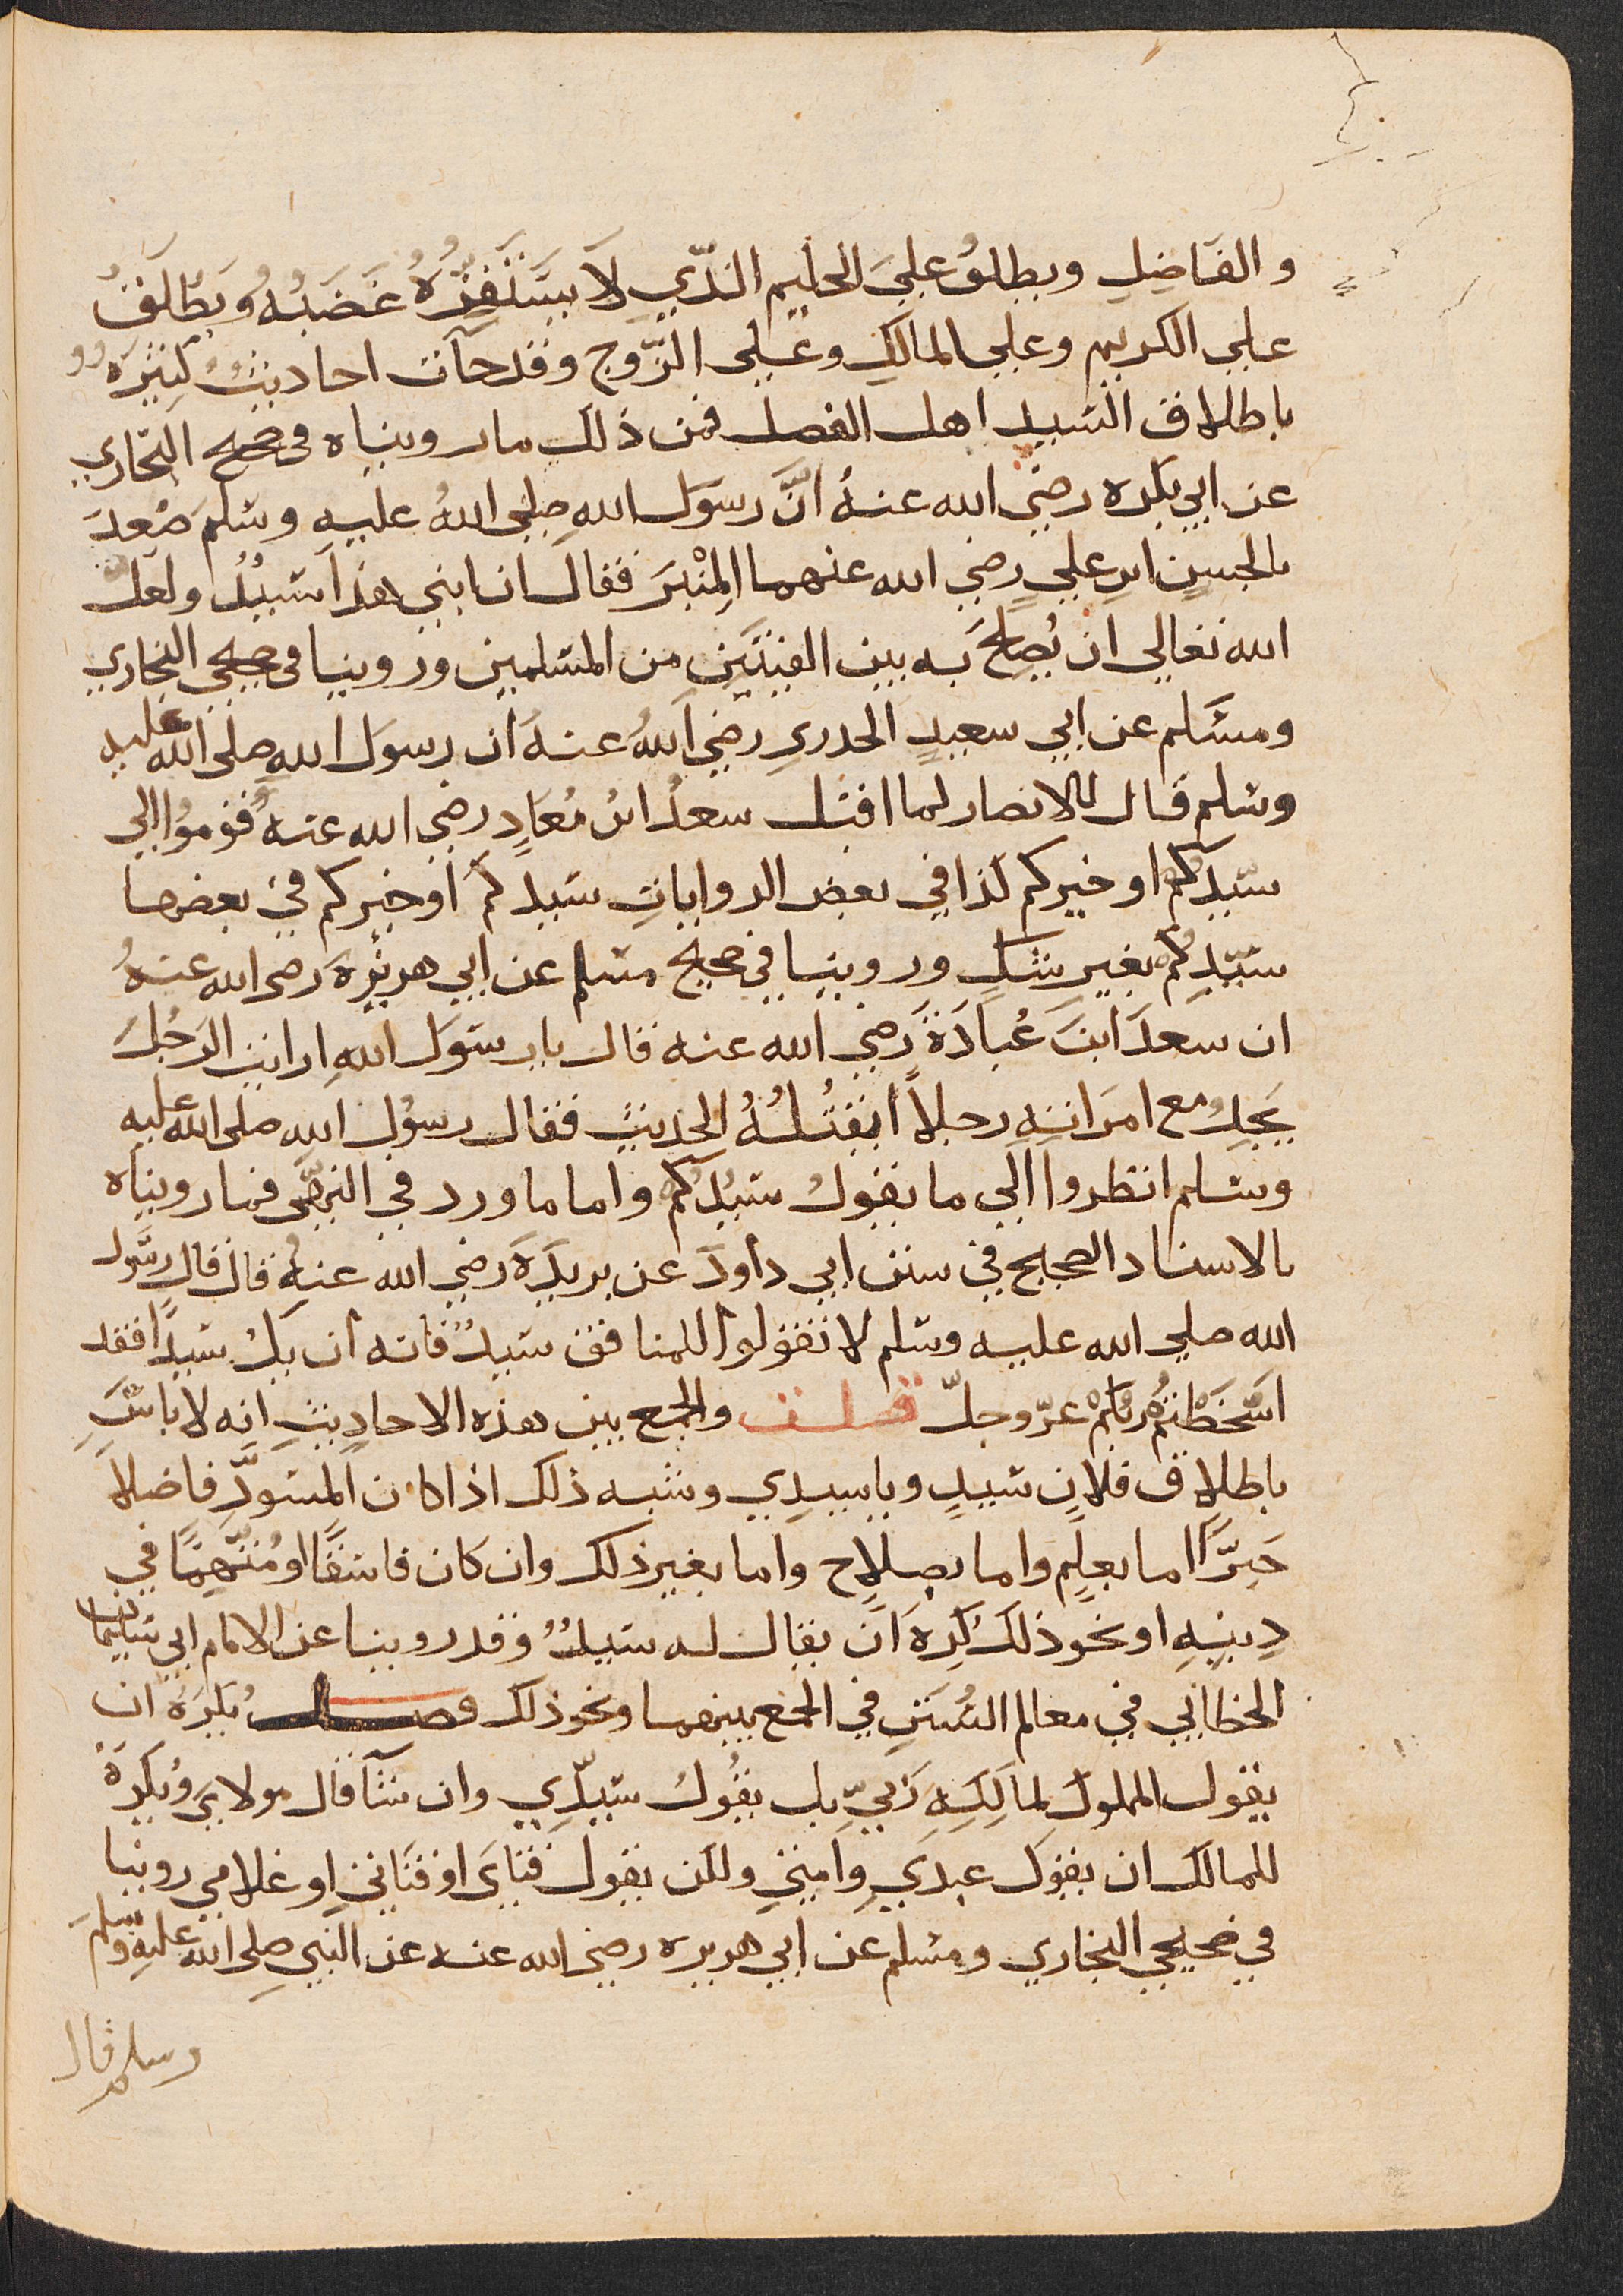 والفَاضِلِ ويطلقُ عليَ الحليم الذّيِ لَا يَسْتَفِزُّهُ غَضَبُهُ وَيُطَلَقُ
علي الكريم وعلي المالكِ وعَلي الزّوج وقد جآت احاديثُ كثِيْرَةٌ
باطلاق السّيد اهل الفضل فمن ذلك ما رويناه في صحيح البخاري
عن ابي بكره رضي الله عنهُ انَّ رسوَل اللهِ صلي اللهُ عليهِ وسلمَ صَعدَ
بالحسنِ ابن عليٍ رضي الله عنهما المِنْبَرَ فقال ان ابني هذا سَيّدٌ ولعل
الله تعالي ان يُصلحَ به بين الفئتَينِ من المسلمين وروينا في صحيحي البخاري
ومسَلم عن ابي سعيدٍ الخدريِ رضي اللهُ عنهُ ان رسوَل اللهِ صلي الله عليه
وسلم قال للانصار لما اقبل سعدُ ابنُ مُعَاذٍ رضي الله عنهُ قوموُا الي
سّيدكُم او خيركم كذا في بعض الرواياتِ سَيدِكمَ او خيركم في بعضها
سَيّدِكُم بغيرِ شَكٍ وروينا في صحيح مسلم عن ابي هريْرةَ رضي الله عنهُ
ان سعدَ ابنَ عُبادَةَ رَضي الله عنه قال يا رسوَل اللهِ ارايت الرَجُلَ
يَجِدُ مع امرَاتِهِ رجلاً ايقتُلُهُ الحديثَ فقال رسوُل الله صلي الله عليه
وسلم انظروا الي ما يقولُ سَيُدكُم واما ما ورد في النهّي فما رويناه
بالاسناد الصحيح في سنن ابي داودَ عن بريدَةَ رضي الله عنهُ قال قال رسَول
الله صلي الله عليه وسلم لا تقولوا للمنافق سَيدٌ فانه ان يكُ سَيدًا فقد
اسَخَطْتمُ ربُكمْ عزّ وجلّ فصل والجمع بين هذه الاحاديثِ انه لا باسَ
باطلاق فلانٍ سَيدٍ ويا سيدِي وشبه ذلك اذا كان المسَوَّدِ فاضلاً
خَيرًّا اما بعلمٍ واما بصلاحٍ واما بغير ذلك وان كان فاسقًا او مُتهمًّا في
دِينِهِ او نحو ذلكَ كُرِهَ اَن يقال له سَيدٌ وقد روينا عن الامام ابي سَليمان
الخطابي في معالم السُنَنِ في الجمع بينهما ونحو ذلك فصل يُكرَهُ ان
يقول المملوك لمالكِهِ رَبيِّ بل يقُولُ سَيّدِي وان شآَ قال مولاي وُيكرَهُ
للمالك ان يقوَل عبدِي وامتي ولكن يقول فتايَ او فتَاتيِ او غلامي روينا
في صحيحي البخاري ومسلم عن ابي هريره رضي الله عنه عن النبي صلي الله عليهِ وسلمَ
وسلم قال